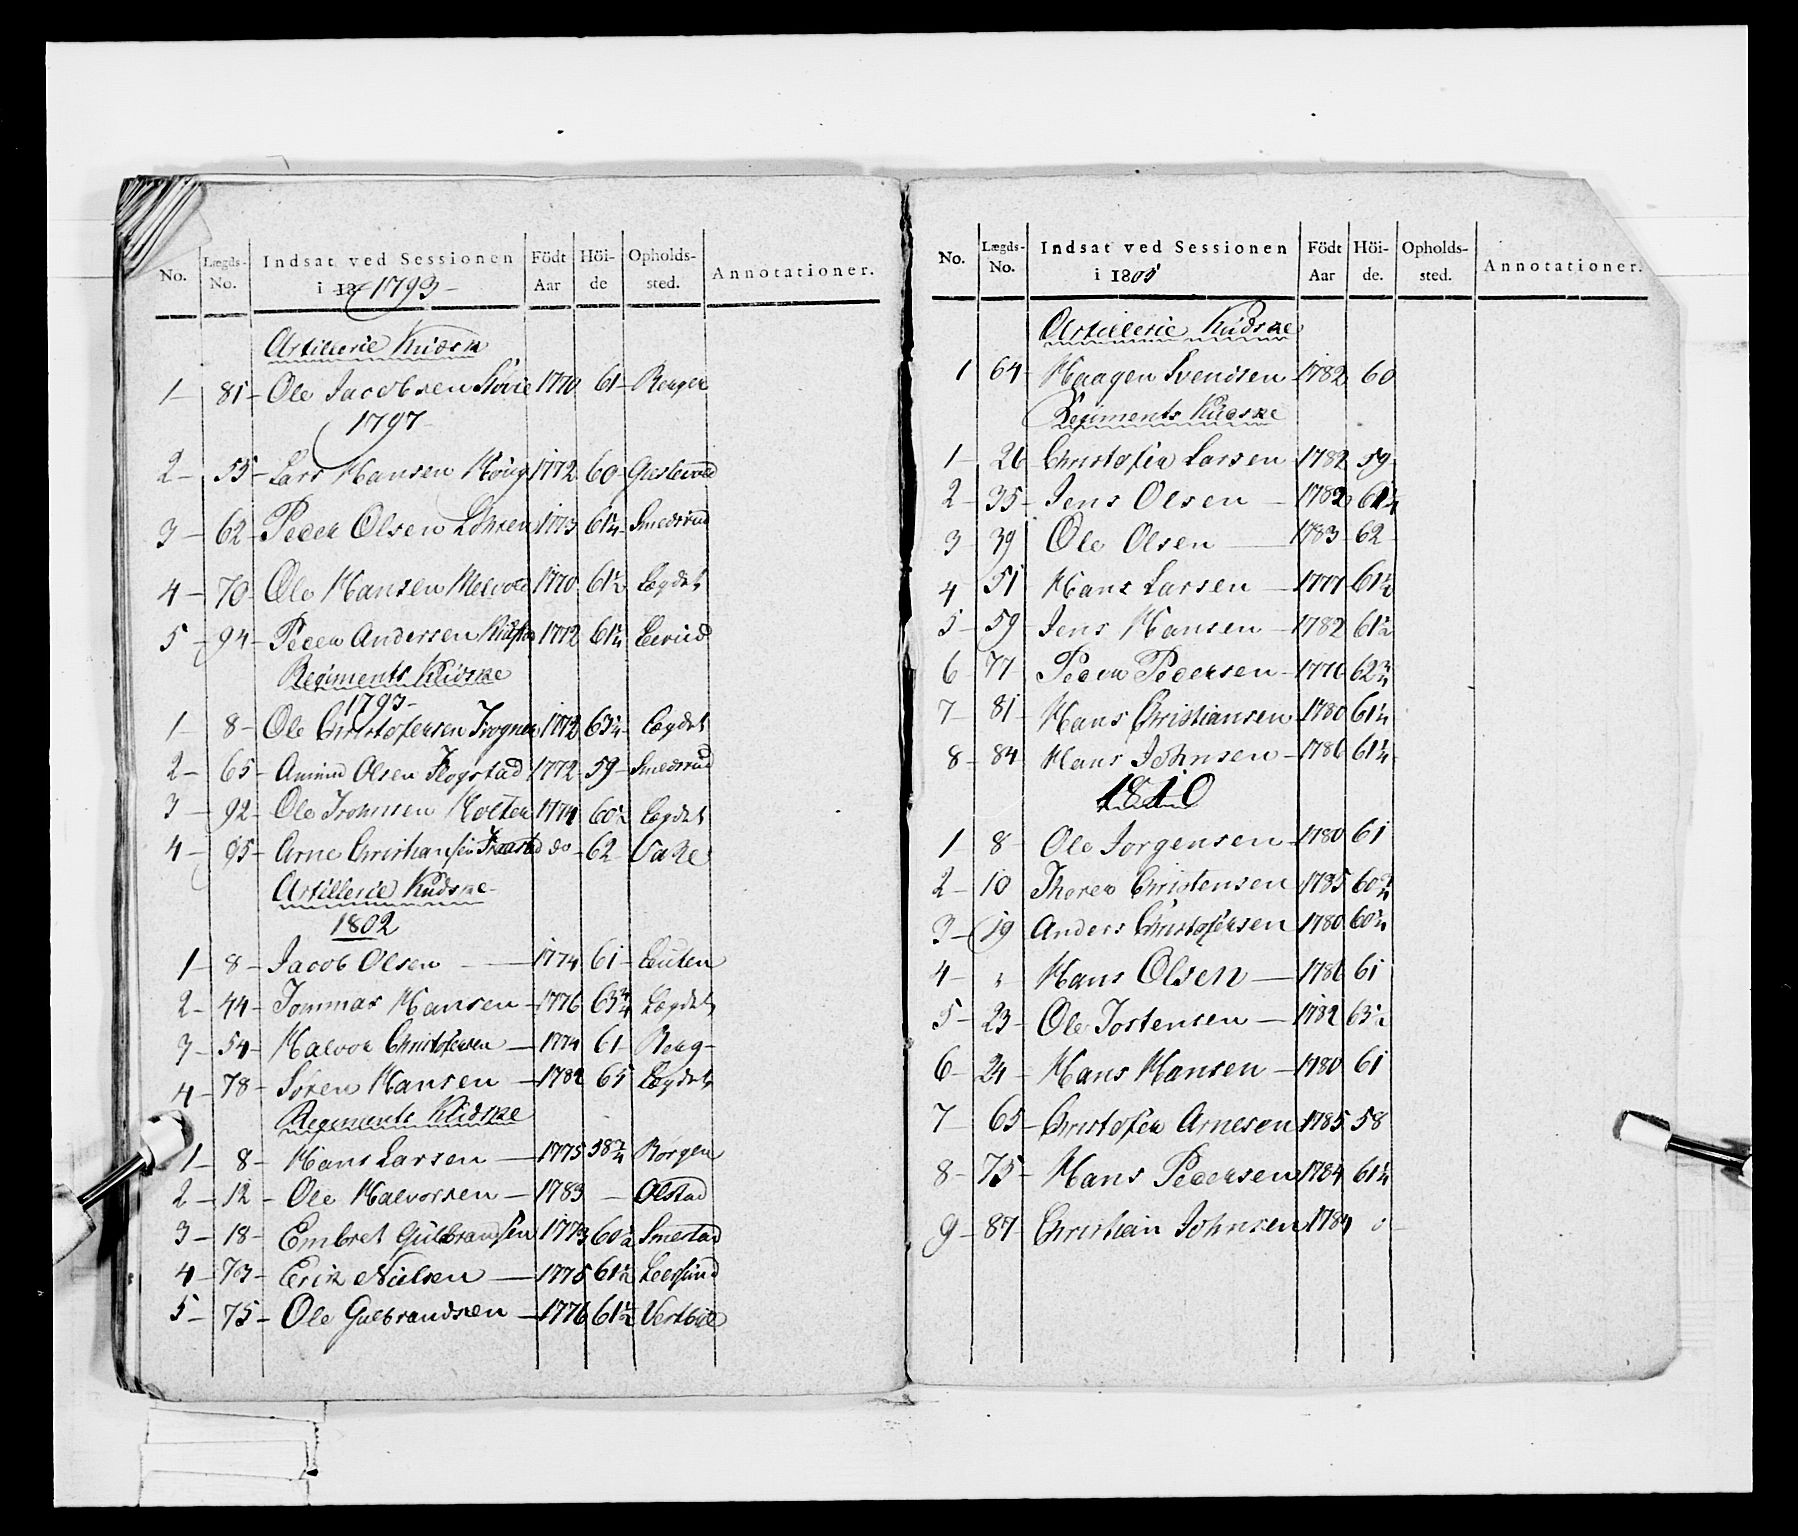 No. Lægds-No. Indsat ved Sessionen i 18 1793 Födt Aar Höide Opholdssted. Annotationer.
Artillerie Kudsk
1 81 Ole Jacobsen 1770 61
1797
2 55 Lars Hansen 1772 60
3 62 Peder Olsen 1773 61¼ Smedsrud
4 70 Ole Hansen 1770 61½ Lægdet
5 94 Peder Andersen 1772 61¼
Regiments Kudske
1793
1 8 Ole Christofersen Frogner 1772 63¼ Lægdet
2 65 Amund Olsen Flogstad 1772 59 Smedsrud
3 92 Ole 1774 60½ Lægdet
4 95 Arne Christiansen do 62
Artillerie Kudske
1802
1 8 Jacob Olsen 1774 61
2 44 Tommas Hansen 1776 63¾ Lægdet
3 54 Halvor Christofersen 1774 61
4 78 Sören Hansen 1782 65 Lægdet
Regiments Kudske
1 8 Hans Larsen 1775 58¾ Börgen
2 12 Ole Halvorsen 1783 — Olstad
3 18 Embret Gulbrandsen 1773 60½ Smestad
4 73 Erik Nielsen 1775 61½
5 75 Ole Gulbrandsen 1776 61½
No. Lægds-No. Indsat ved Sessionen i 1805 Födt Aar Höide. Opholdssted. Annotationer.
Artillerie Kudske
1 64 Haagen Svendsen 1782 60
Regiments Kudske
1 26 Christofer Larsen 1782 59
2 35 Jens Olsen 1782 61¼
3 39 Ole Olsen 1783 62
4 51 Hans Larsen 1777 61½
5 59 Jens Hansen 1782 61½
6 77 Peder Pedersen 1776 62¾
7 81 Hans Christiansen 1780 61¼
8 84 Hans Johnsen 1786 61¼
1810
1 8 Ole Jörgensen 1780 61
2 10 Thorer Christensen 1785 60¾
3 19 Anders Christofersen 1780 60¾
4 " Hans Olsen 1786 61
5 23 Ole Tostensen 1782 63½
6 24 Hans Hansen 1780 61
7 65 Christofer Arnesen 1785 58
8 75 Hans Pedersen 1784 61¼
9 87 Christian Johnsen 1784